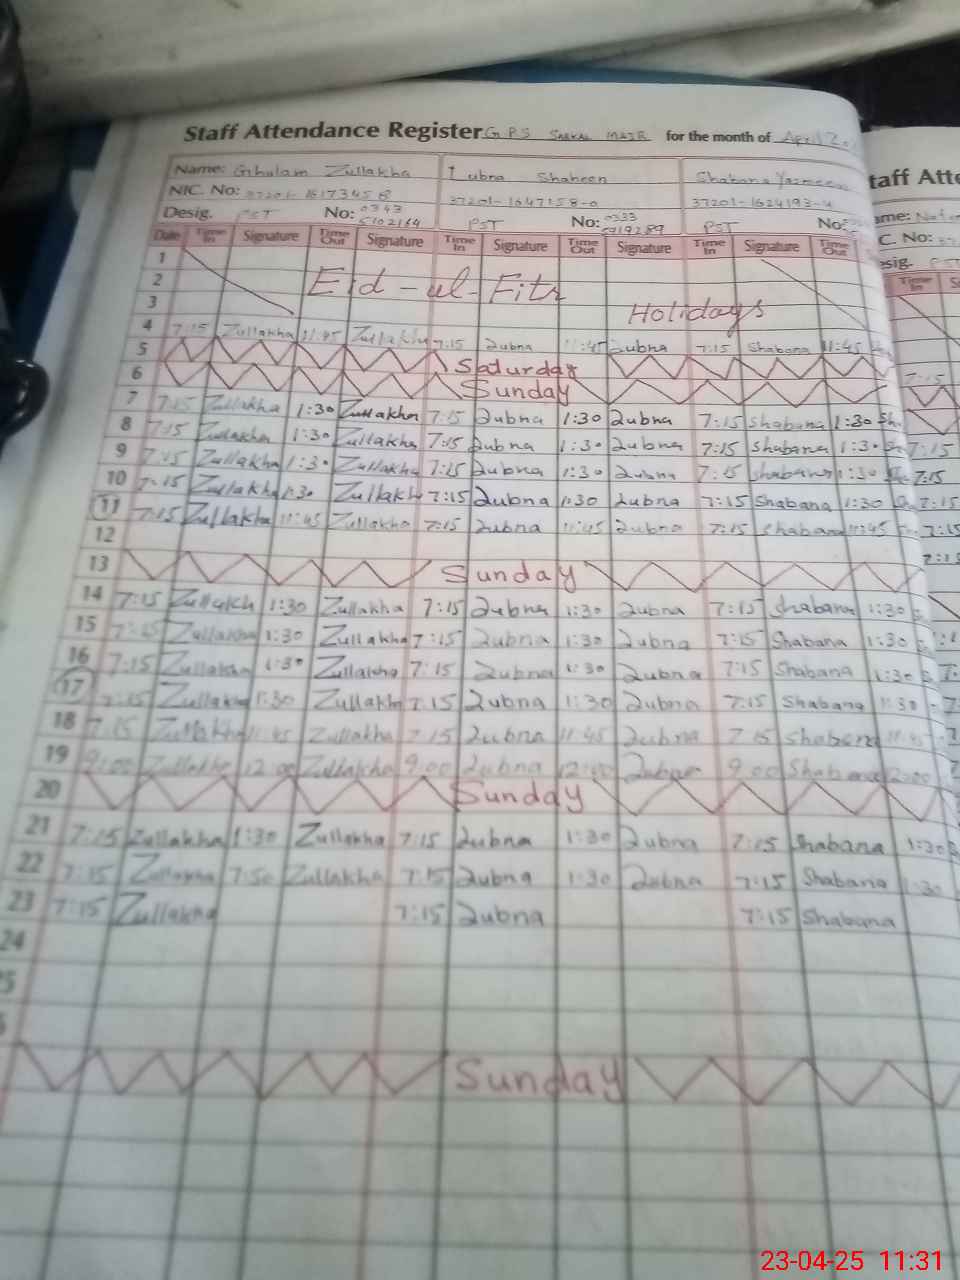 Staff Attendance Register G.P.S for the month of April
Name: Ghulam Zullakha Lubna Shaheen Shabana Yasmeen
NIC. No: 37201-1647158-0 37201-1624193-4
Desig. PST No: 0343 PST No: 0333 PST No:
5102164 5919289
Date Time In Signature Time Out Signature Time In Signature Time Out Signature Time In Signature Time Out
1
2 Eid-ul-Fitr
3 Holidays
4 7:15 Zullakha 11:45 Zullakha 7:15 Lubna 11:45 Lubna 7:15 Shabana 11:45
5 Saturday
6 Sunday
7 7:15 Zullakha 1:30 Zullakha 7:15 Lubna 1:30 Lubna 7:15 Shabana 1:30 Sh
8 7:15 Zullakha 1:30 Zullakha 7:15 Lubna 1:30 Lubna 7:15 Shabana 1:30 7:15
9 7:15 Zullakha 1:30 Zullakha 7:15 Lubna 1:30 Lubna 7:15 Shabana 1:30 7:15
10 7:15 Zullakha 1:30 Zullakh 7:15 Lubna 1:30 Lubna 7:15 Shabana 1:30 7:15
11 7:15 Zullakha 11:45 Zullakha 7:15 Lubna 11:45 Lubna 7:15 Shabana 11:45 7:15
12
13 Sunday
14 7:15 Zullakh 1:30 Zullakha 7:15 Lubna 1:30 Lubna 7:15 Shabana 1:30
15 7:15 Zullakha 1:30 Zullakha 7:15 Lubna 1:30 Lubna 7:15 Shabana 1:30
16 7:15 Zullakha 1:30 Zullakha 7:15 Lubna 1:30 Lubna 7:15 Shabana 1:30
17 7:15 Zullakha 1:30 Zullakh 7:15 Lubna 1:30 Lubna 7:15 Shabana 1:30
18 7:15 Zullakha 11:45 Zullakha 7:15 Lubna 11:45 Lubna 7:15 Shabana 11:45
19 9:00 Zullakha 12:00 Zullakha 9:00 Lubna 12:00 Lubna 9:00 Shabana 12:00
20 Sunday
21 7:15 Zullakha 1:30 Zullakha 7:15 Lubna 1:30 Lubna 7:15 Shabana 1:30
22 7:15 Zullakha 7:50 Zullakha 7:15 Lubna 1:30 Lubna 7:15 Shabana 1:30
23 7:15 Zullakha 7:15 Lubna 7:15 Shabana
24
Sunday
23-04-25 11:31